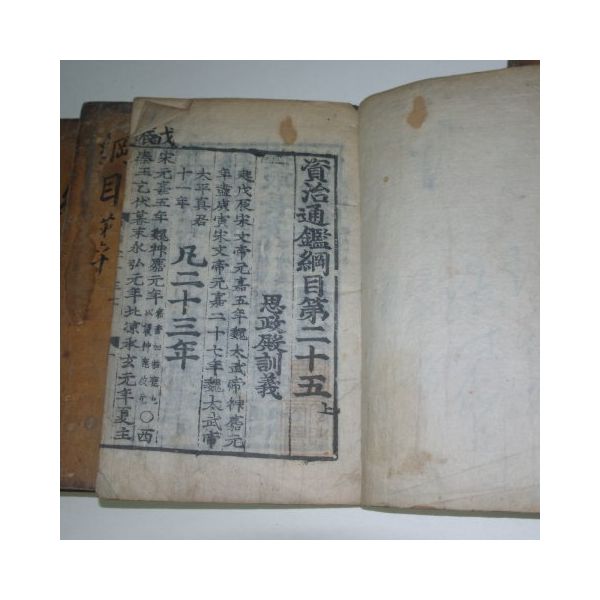 資治通鑑綱目第二十五上
思政殿訓義
起戊辰宋文帝元嘉五年魏太武帝神嘉元
年盡庚寅宋文帝元嘉二十七年魏太武帝
太平真君
十一年
凡二十三年
戊辰
宋元嘉五年魏神嘉元年
○西
秦王乞伏暮末永弘元年北涼承玄元年夏主
綱目